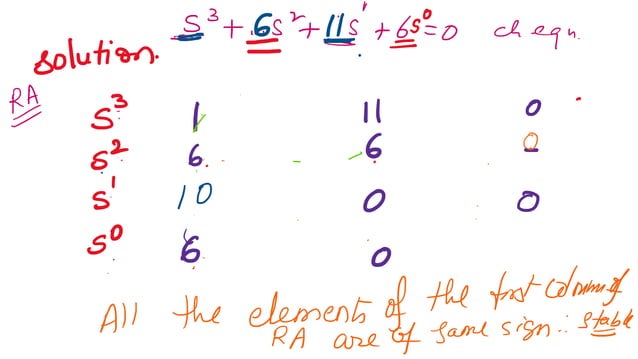 s³ + 6s² + 11s¹ + 6s⁰ = 0 ch eqn.
solution.
RA
s³ 1 11 0
s² 6 6 0
s¹ 10 0 0
s⁰ 6 0
All the elements of the first column of
RA are of same sign ∴ stable